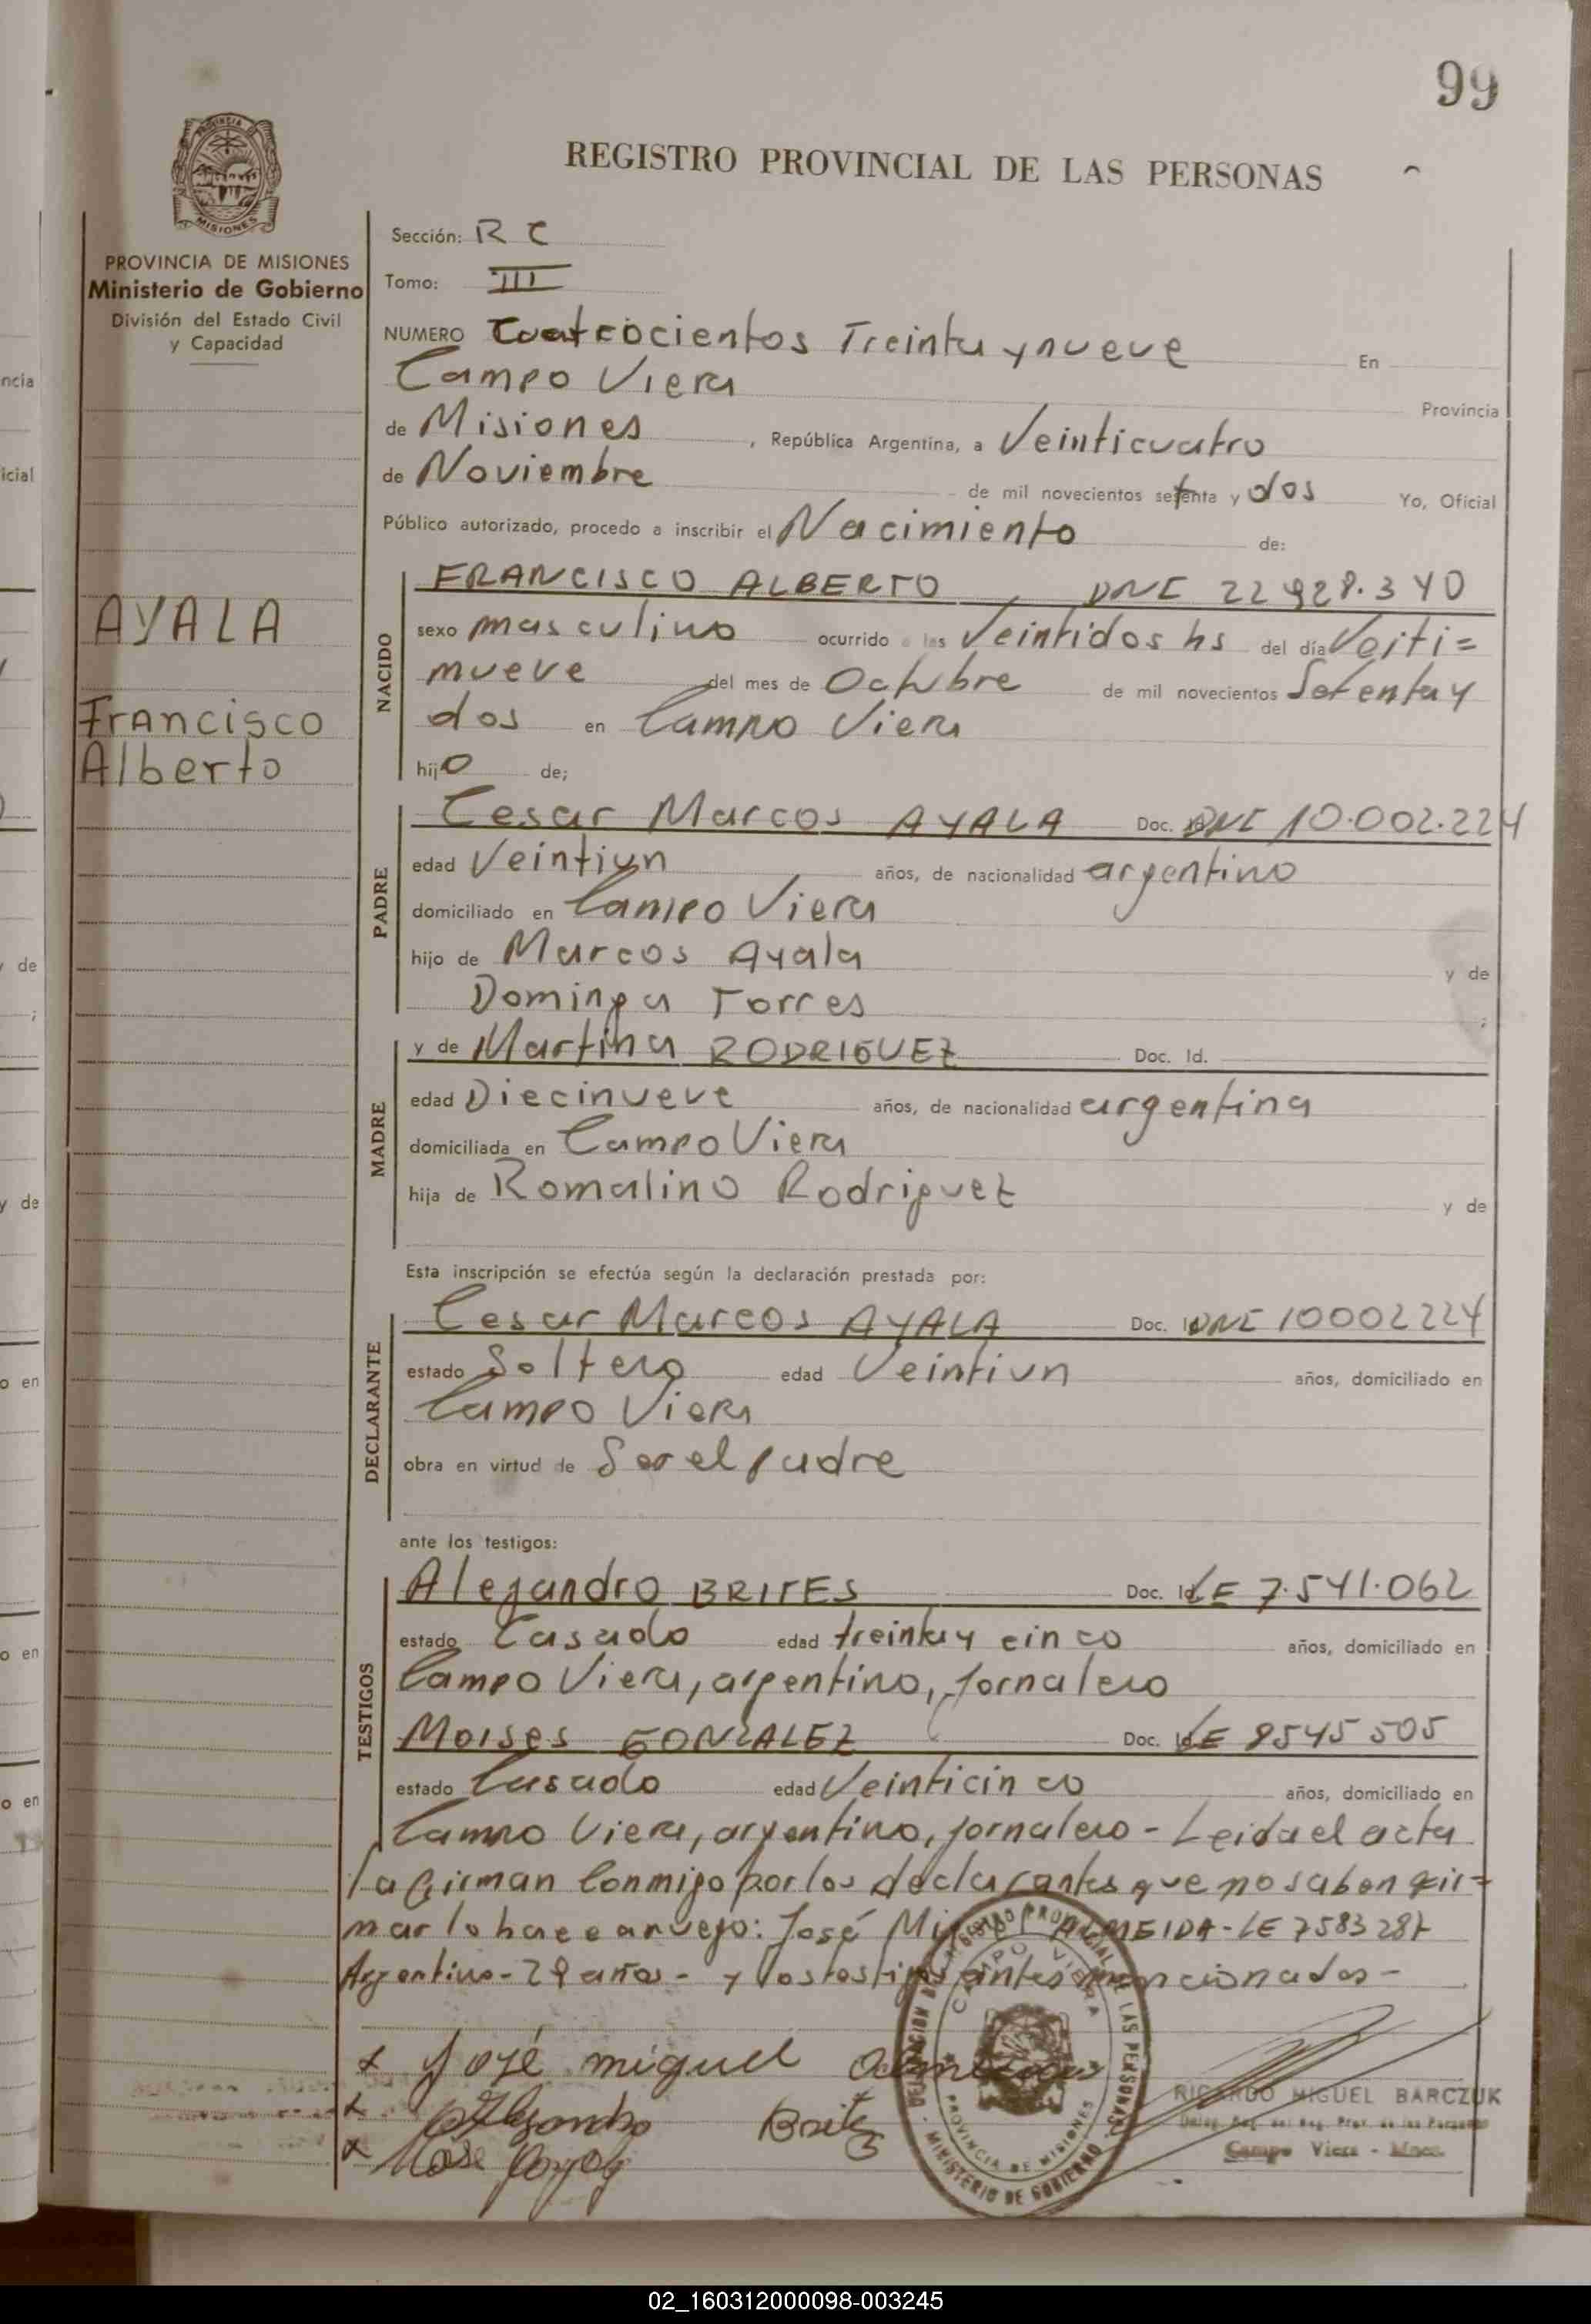 99
REGISTRO PROVINCIAL DE LAS PERSONAS
PROVINCIA MISIONES
PROVINCIA DE MISIONES
Ministerio de Gobierno
División del Estado Civil
y Capacidad
AYALA
Francisco
Alberto
Sección: R C
Tomo: III
NUMERO Cuatrocientos Treinta y nueve En
Campo Viera Provincia
de Misiones, República Argentina, a Veinticuatro
de Noviembre de mil novecientos setenta y dos Yo, Oficial
Público autorizado, procedo a inscribir el Nacimiento de:
NACIDO
FRANCISCO ALBERTO, DNI 22.928.340
sexo masculino ocurrido a las Veintidos hs del día Veiti=
nueve del mes de Octubre de mil novecientos Setenta y
dos en Campo Viera
hijo de;
PADRE
Cesar Marcos AYALA Doc. DNI 10.002.224
edad Veintiun años, de nacionalidad argentino
domiciliado en Campo Viera
hijo de Marcos Ayala y de
Dominga Torres ;
MADRE
y de Martina RODRIGUEZ Doc. Id.
edad Diecinueve años, de nacionalidad argentina
domiciliada en Campo Viera
hija de Romalino Rodriguez y de
Esta inscripción se efectúa según la declaración prestada por:
DECLARANTE
Cesar Marcos AYALA Doc. DNI 10002224
estado Soltero edad Veintiun años, domiciliado en
Campo Viera
obra en virtud de Ser el padre
ante los testigos:
TESTIGOS
Alejandro BRITES Doc. Id. LE 7.541.062
estado Casado edad treinta y cinco años, domiciliado en
Campo Viera, argentino, jornalero
Moises GONZALEZ Doc. Id. LE 8545505
estado Casado edad Veinticinco años, domiciliado en
Campo Viera, argentino, jornalero - Leida el acta
la firman conmigo por los declarantes que no saben fir=
mar lo hace a ruego: José Miguel ALMEIDA - LE 7583287
Argentino - 28 años - y los testigos antes mencionados -
x José miguel Almeida
x Alejandro Brites
x
DELEGACION DEL REGISTRO PROVINCIAL DE LAS PERSONAS
CAMPO VIERA
PROVINCIA DE MISIONES
MINISTERIO DE GOBIERNO
RICARDO MIGUEL BARCZUK
Campo Viera - Mnes.
02_160312000098-003245